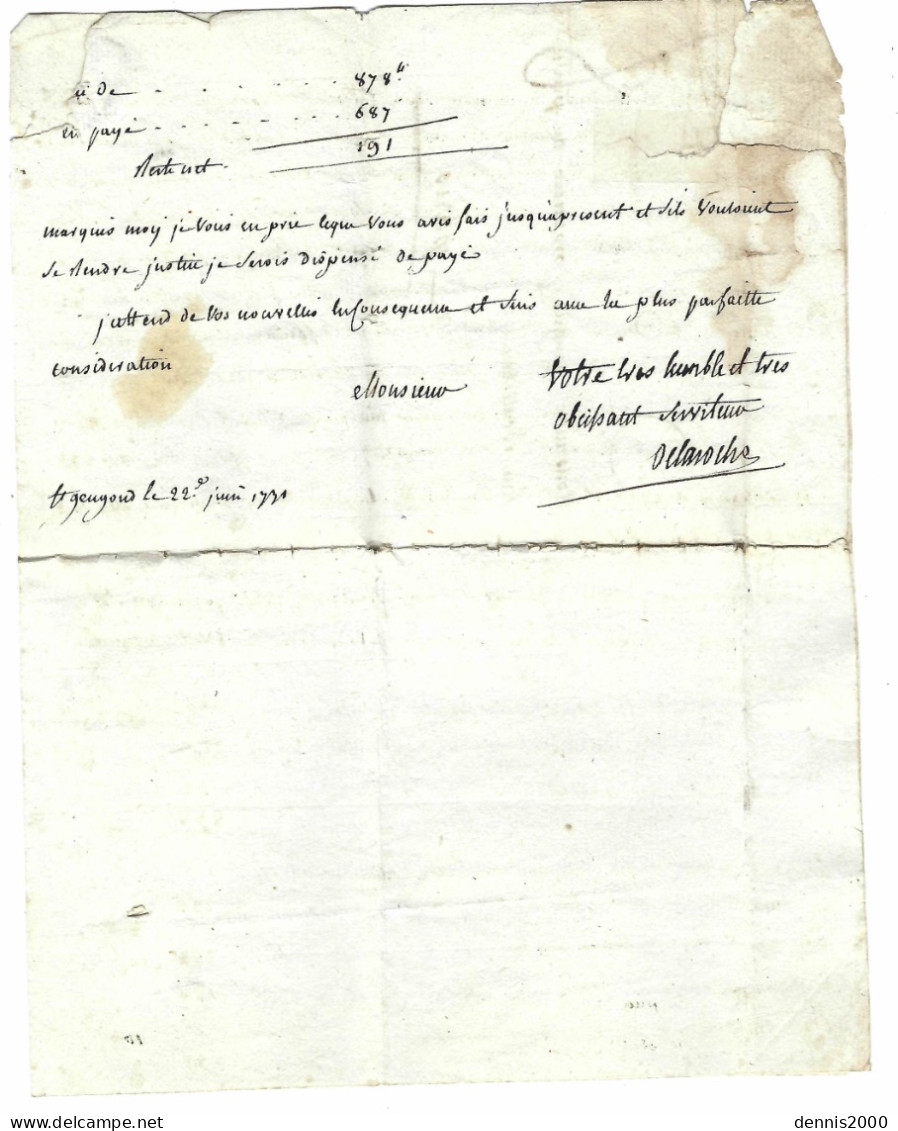 ci de - - - - - - 878lt
en payé - - - - - - 687
Reste net 191
marqués moy je vous en prie ceque vous avés fais jusquapresent et sils vouloient
se Rendre justice je serois dispensé de payé
jattend de vos nouvelles en Consequence et suis avec la plus parfaitte
consideration
Monsieur
Votre tres humble et tres
obeissant serviteur
Delaroche
St gengond le 22e juin 1771
dennis2000